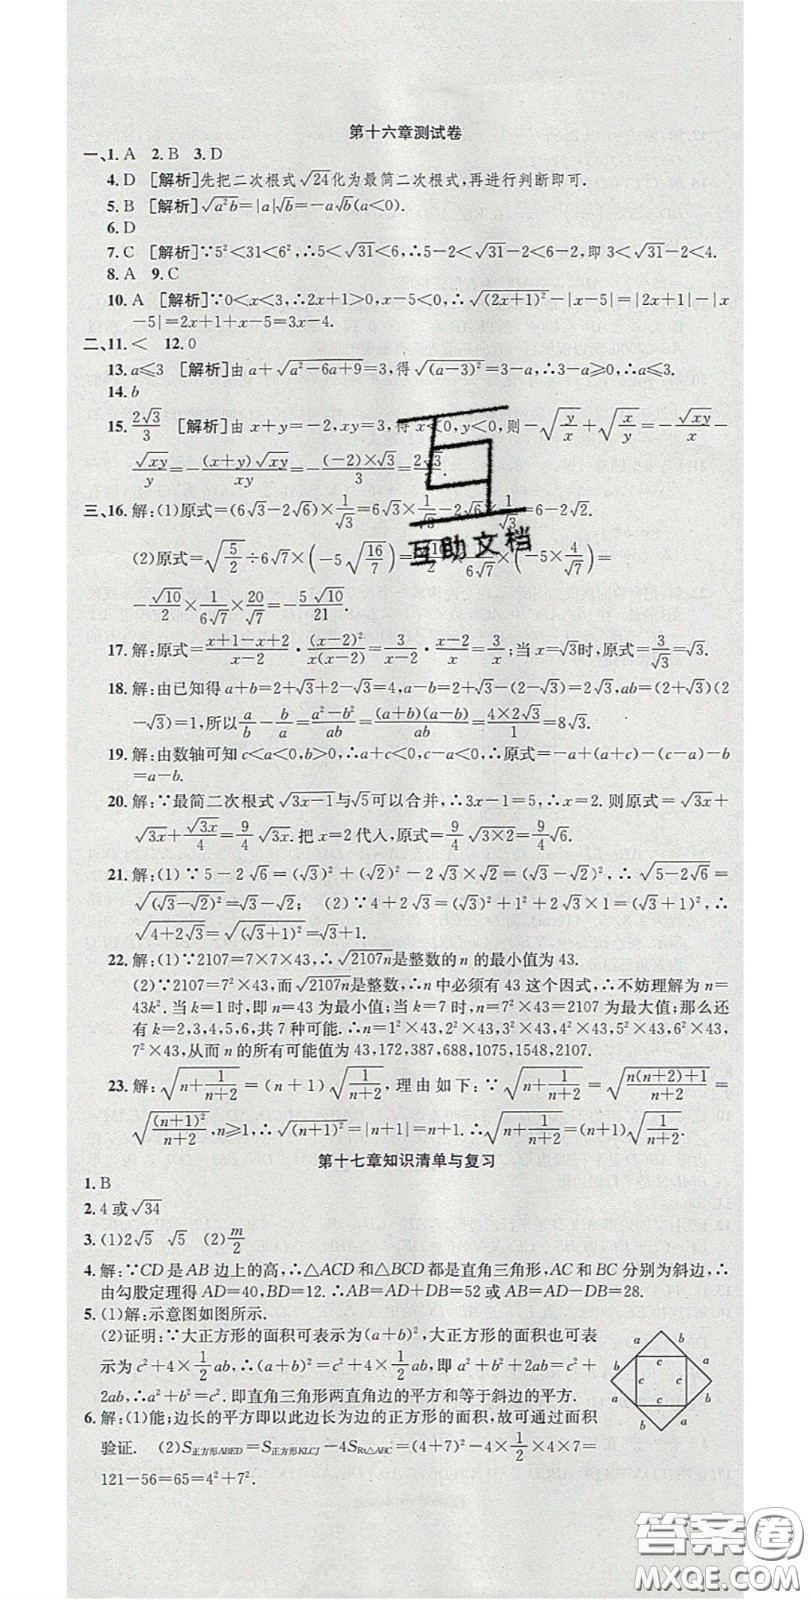 第十六章测试卷
一、1. A　2. B　3. D
4. D　[解析]先把二次根式√24化为最简二次根式,再进行判断即可.
5. B　[解析]√(a²b)=|a|√b=-a√b(a<0).
6. D
7. C　[解析]∵5²<31<6²,∴5<√31<6,∴5-2<√31-2<6-2,即3<√31-2<4.
8. A　9. C
10. A　[解析]∵0<x<3,∴2x+1>0,x-5<0,∴√((2x+1)²)-|x-5|=|2x+1|-|x
-5|=2x+1+x-5=3x-4.
二、11. <　12. 0
13. a≤3　[解析]由a+√(a²-6a+9)=3,得√((a-3)²)=3-a,∴3-a≥0,∴a≤3.
14. b
15. 2√3/3　[解析]由x+y=-2,xy=3,得x<0,y<0,则-√(y/x)+√(x/y)=-√(xy)/x-
√(xy)/y=-(x+y)√(xy)/xy=-(-2)×√3/3=2√3/3.
三、16. 解:(1)原式=(6√3-2√6)×1/√3=6√3×1/√3-2√6×1/√3=6-2√2.
(2)原式=√(5/2)÷6√7×(-5√(16/7))=√10/2×1/(6√7)×(-5×4/√7)=
-√10/2×1/(6√7)×20/√7=-5√10/21.
17. 解:原式=(x+1-x+2)/(x-2)·(x-2)²/(x(x-2))=3/(x-2)·(x-2)/x=3/x;当x=√3时,原式=3/√3=√3.
18. 解:由已知得a+b=2+√3+2-√3=4,a-b=2+√3-(2-√3)=2√3,ab=(2+√3)(2
-√3)=1,所以a/b-b/a=(a²-b²)/ab=(a+b)(a-b)/ab=4×2√3/1=8√3.
19. 解:由数轴可知c<a<0,b>0,∴a+c<0,c-a<0,∴原式=-a+(a+c)-(c-a)-b
=a-b.
20. 解:∵最简二次根式√(3x-1)与√5可以合并,∴3x-1=5,∴x=2. 则原式=√(3x)+
√(3x)+√(3x)/4=9/4√(3x). 把x=2代入,原式=9/4√(3×2)=9/4√6.
21. 解:(1)∵5-2√6=(√3)²+(√2)²-2√3×√2=(√3-√2)²,∴√(5-2√6)=
√((√3-√2)²)=√3-√2;　(2)∵4+2√3=(√3)²+1²+2√3×1=(√3+1)²,∴
√(4+2√3)=√((√3+1)²)=√3+1.
22. 解:(1)∵2107=7×7×43,∴√(2107n)是整数的n的最小值为43.
(2)∵2107=7²×43,而√(2107n)是整数,∴n中必须有43这个因式,∴不妨理解为n=
43k². 当k=1时,即n=43为最小值;当k=7时,n=7²×43=2107为最大值;那么还
有k=2,3,4,5,6,共7种可能.∴n=1²×43,2²×43,3²×43,4²×43,5²×43,6²×43,
7²×43,从而n的所有可能值为43,172,387,688,1075,1548,2107.
23. 解:√(n+1/(n+2))=(n+1)√(1/(n+2)),理由如下:∵√(n+1/(n+2))=√((n(n+2)+1)/(n+2))=
√((n+1)²/(n+2)),n≥1,∴√((n+1)²)=|n+1|=n+1.∴√(n+1/(n+2))=(n+1)√(1/(n+2)).
第十七章知识清单与复习
1. B
2. 4或√34
3. (1)2√5　√5　(2)m/2
4. 解:∵CD是AB边上的高,∴△ACD和△BCD都是直角三角形,AC和BC分别为斜边,∴
由勾股定理得AD=40,BD=12.∴AB=AD+DB=52或AB=AD-DB=28.
5. (1)解:示意图如图所示.
(2)证明:∵大正方形的面积可表示为(a+b)²,大正方形的面积也可表
示为c²+4×1/2ab,∴(a+b)²=c²+4×1/2ab,即a²+b²+2ab=c²+
2ab,∴a²+b²=c². 即直角三角形两直角边的平方和等于斜边的平方.
a b b a c c c c a b b a
6. 解:(1)能;边长的平方即以此边长为边的正方形的面积,故可通过面积
验证.　(2)S正方形ABED=S正方形KLCJ-4SRt△ABC=(4+7)²-4×1/2×4×7=
121-56=65=4²+7².
互助文档
答案圈
MXQE.COM